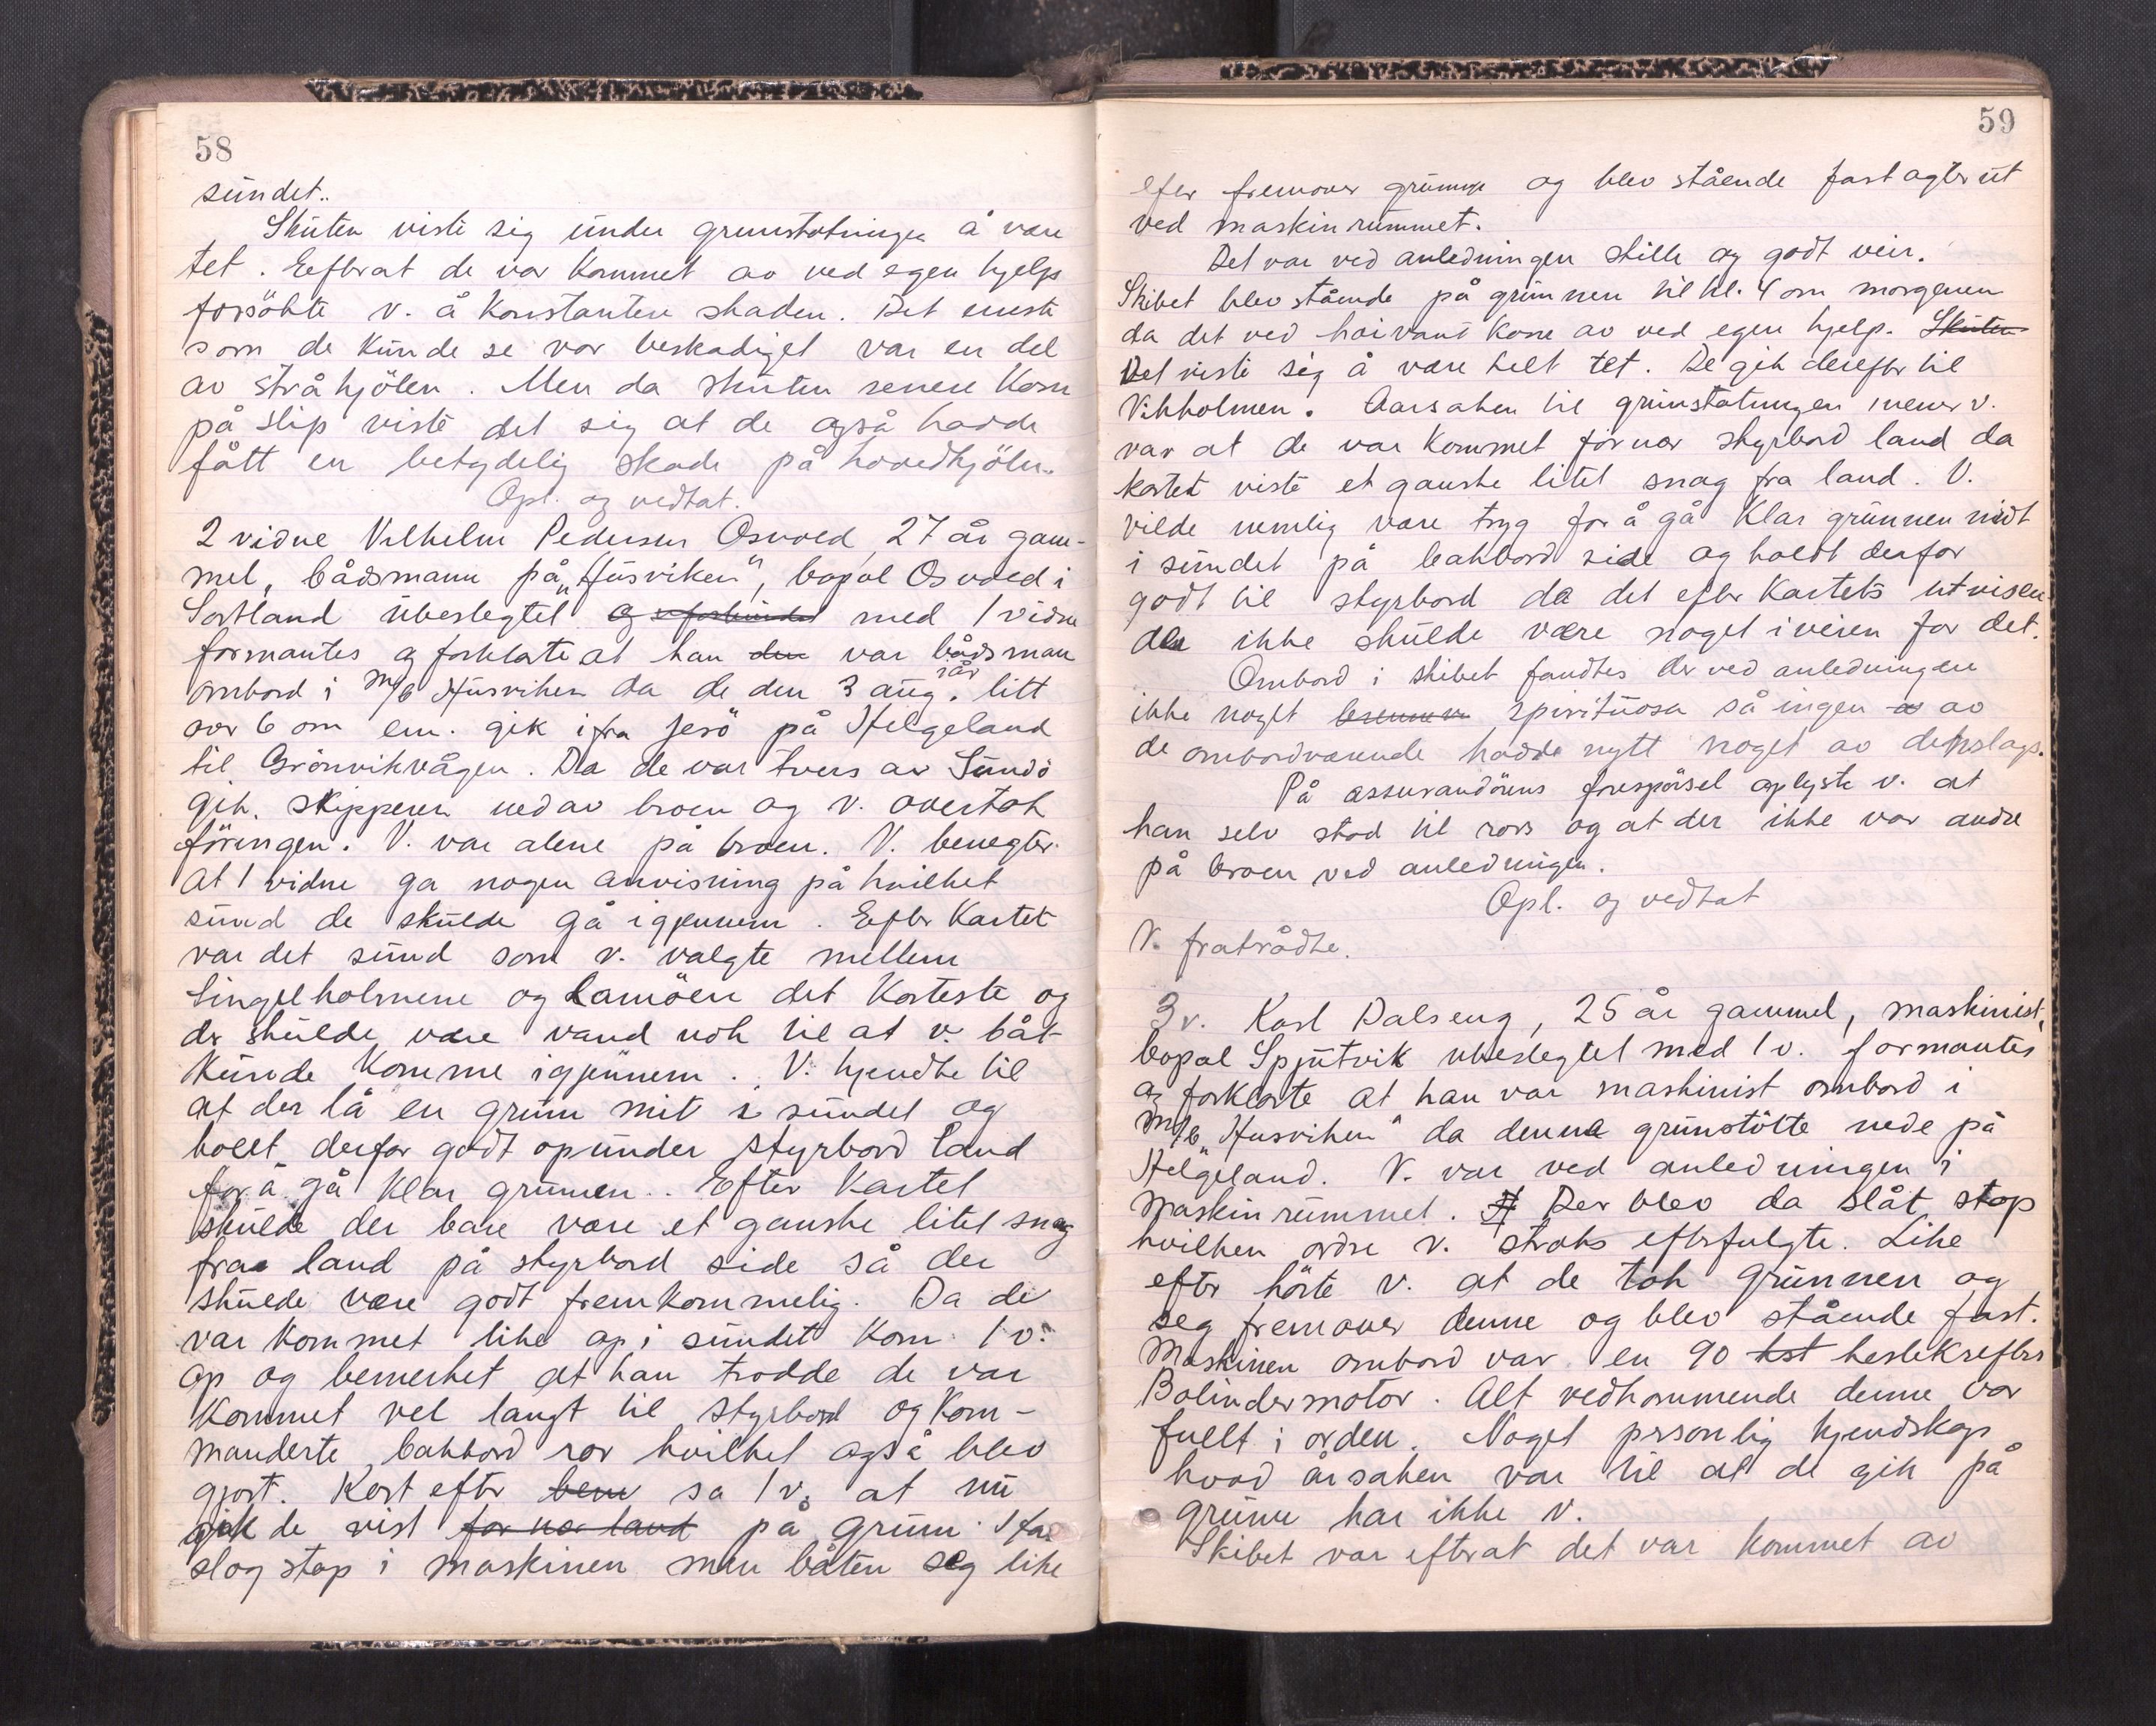 58
sundet..
Skuten viste sig under grunstøtningen å være
tet. Eefterat de var kommet av ved egen hjelp
forsökte v. å konstantere skaden. Det eneste
som de kunde se var beskadiget var en del
av stråkjölen. Men da skuten senere kom
på slip viste det sig at de også hadde
fått en betydelig skade på hovedkjölen.
Opl. og vedtat.
2 vidne Vilhelm Pedersen Osvold, 27 år gam-
mel, bådsmann på „Husviken", bopæl Osvold i
Sortland ubeslegtet og med 1 vidne
formantes og forklarte at han den var båds man
ombord i M/b Husviken da de den 3 aug. iår litt
over 6 om em. gik ifra Jesö på Helgeland
til Grönvikvågen. Da de var tvers av Sundö
gik skipperen ned av broen og v. overtok
föringen. V. var alene på broen. V. benegter
at 1 vidne ga nogen anvisning på hvilket
sund de skulde gå igjennem. Efter Kartet
var det sund som v. valgte mellem
Lingelholmene og Lamöen det korteste og
der skulde være vand nok til at v. båt
kunde komme igjennem. V. kjendte til
at der lå en grun mit i sundet og
holdt derfor godt opunder styrbord land
for å gå klar grunnen.. Efter Kartet
skulde der bare være et ganske litet snag
fra land på styrbord side så der
skulde være godt fremkommelig. Da de
var kommet like op i sundet kom 1 v.
op og bemerket at han trodde de var
kommet vel langt til styrbord og kom-
manderte bakbord ror hvilket også blev
gjort. Kort efter bem sa 1 v. at nu
gik de vist for nær land på grun. Han
slog stop i maskinen men båten seg like
59
efter fremover grunne og blev stående fast agterut
ved maskinrummet.
Det var ved anledningen stille og godt veir.
Skibet blev stående på grunnen til kl. 4 om morgenen
da det ved høivand kom av ved egen hjelp. Skuten
Det viste sig å være helt tet. De gik derefter til
Vikholmen. Aarsaken til grunstøtningen mener v.
var at de var kommet for nær styrbord land da
kartet viste et ganske litet snag fra land. V.
vilde nemlig være tryg for å gå klar grunnen midt
i sundet på bakbord side og holdt derfor
godt til styrbord da det efter Kartets utvisen-
de ikke skulde være noget i veien for det.
Ombord i skibet fandtes der ved anledningen
ikke noget spirituosa så ingen av
de ombordværende hadde nytt noget av denslags.
På assurandörens forespörsel oplyste v. at
han selv stod til rors og at der ikke var andre
på broen ved anledningen.
Opl. og vedtat
V. fratrådte.
3 v. Karl Dalseng, 25 år gammel, maskinist,
bopæl Spjutvik ubeslegtet med 1 v. formantes
og forklarte at han var maskinist ombord i
M/b „Husviken" da denne grunstötte nede på
Helgeland. V. var ved anledningen i
maskinrummet. Der blev da slåt stop
hvilken ordre v. straks efterfulgte. Like
efter hörte v. at de tok grunnen og
seg fremover denne og blev stående fast.
Maskinen ombord var en 90 hst hestekrefters
Bolindermotor. Alt vedkommende denne var
fullt i orden. Noget personlig kjendskap
hvad årsaken var til at de gik på
grunn har ikke v.
Skibet var efterat det var kommet av